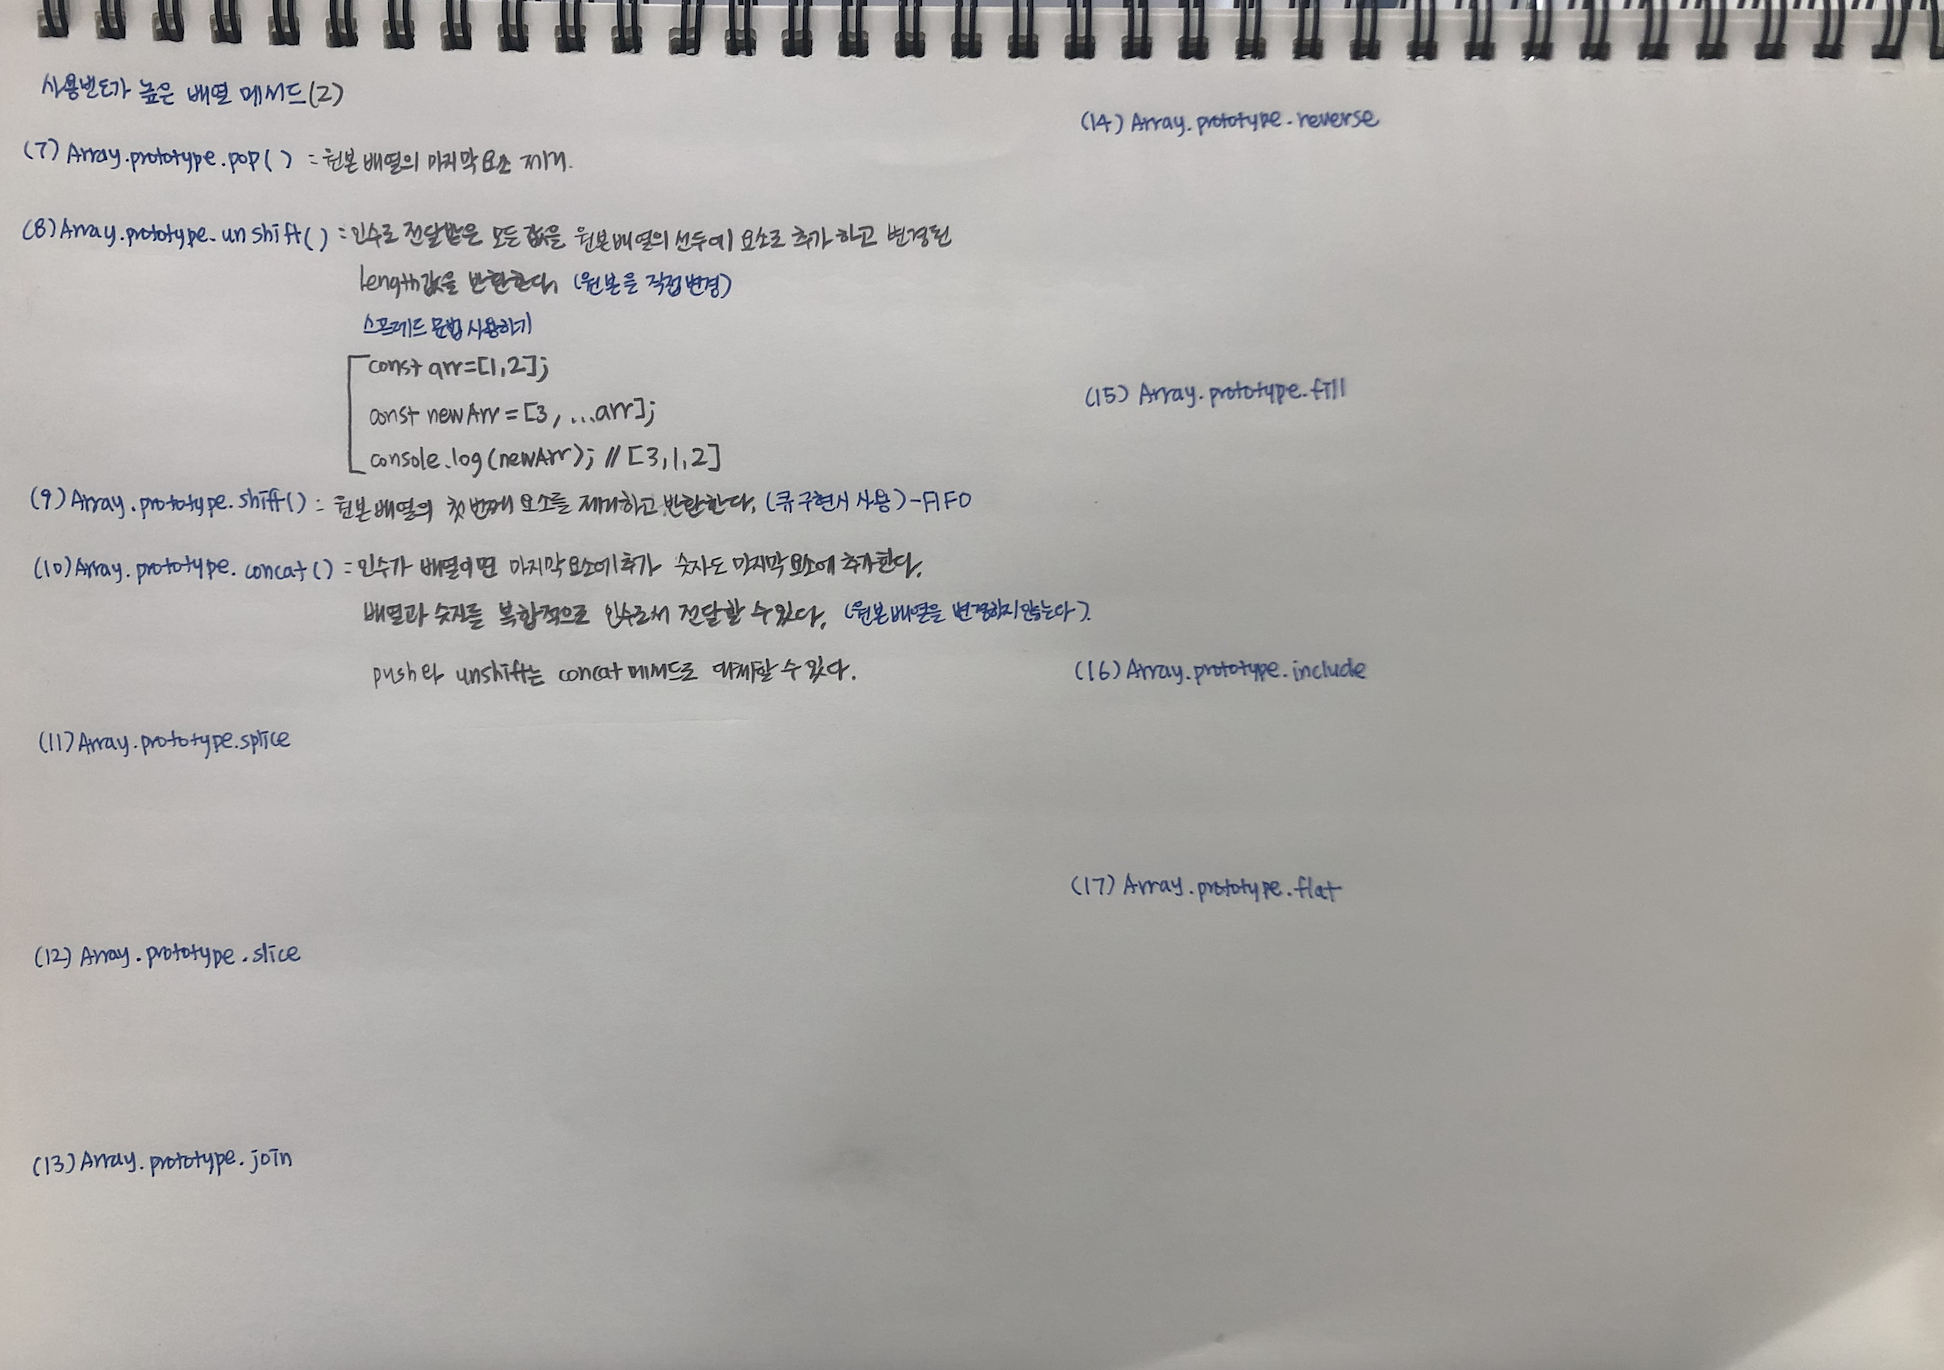 사용빈도가 높은 배열 메서드(2)
(7) Array.prototype.pop() : 원본 배열의 마지막 요소 제거.
(8) Array.prototype.unshift() : 인수로 전달받은 모든 값을 원본배열의 선두에 요소로 추가 하고 변경된
length값을 반환한다. (원본을 직접변경)
스프레드 문법 사용하기
const arr=[1,2];
const newArr = [3, ...arr];
console.log(newArr); // [3,1,2]
(9) Array.prototype.shift() : 원본 배열의 첫번째 요소를 제거하고 반환한다. (큐 구현시 사용) - FIFO
(10) Array.prototype.concat() : 인수가 배열이면 마지막 요소에 추가 숫자도 마지막 요소에 추가한다.
배열과 숫자를 복합적으로 인수로서 전달할 수 있다. (원본배열을 변경하지 않는다).
push와 unshift는 concat 메서드로 대체할 수 있다.
(11) Array.prototype.splice
(12) Array.prototype.slice
(13) Array.prototype.join
(14) Array.prototype.reverse
(15) Array.prototype.fill
(16) Array.prototype.include
(17) Array.prototype.flat